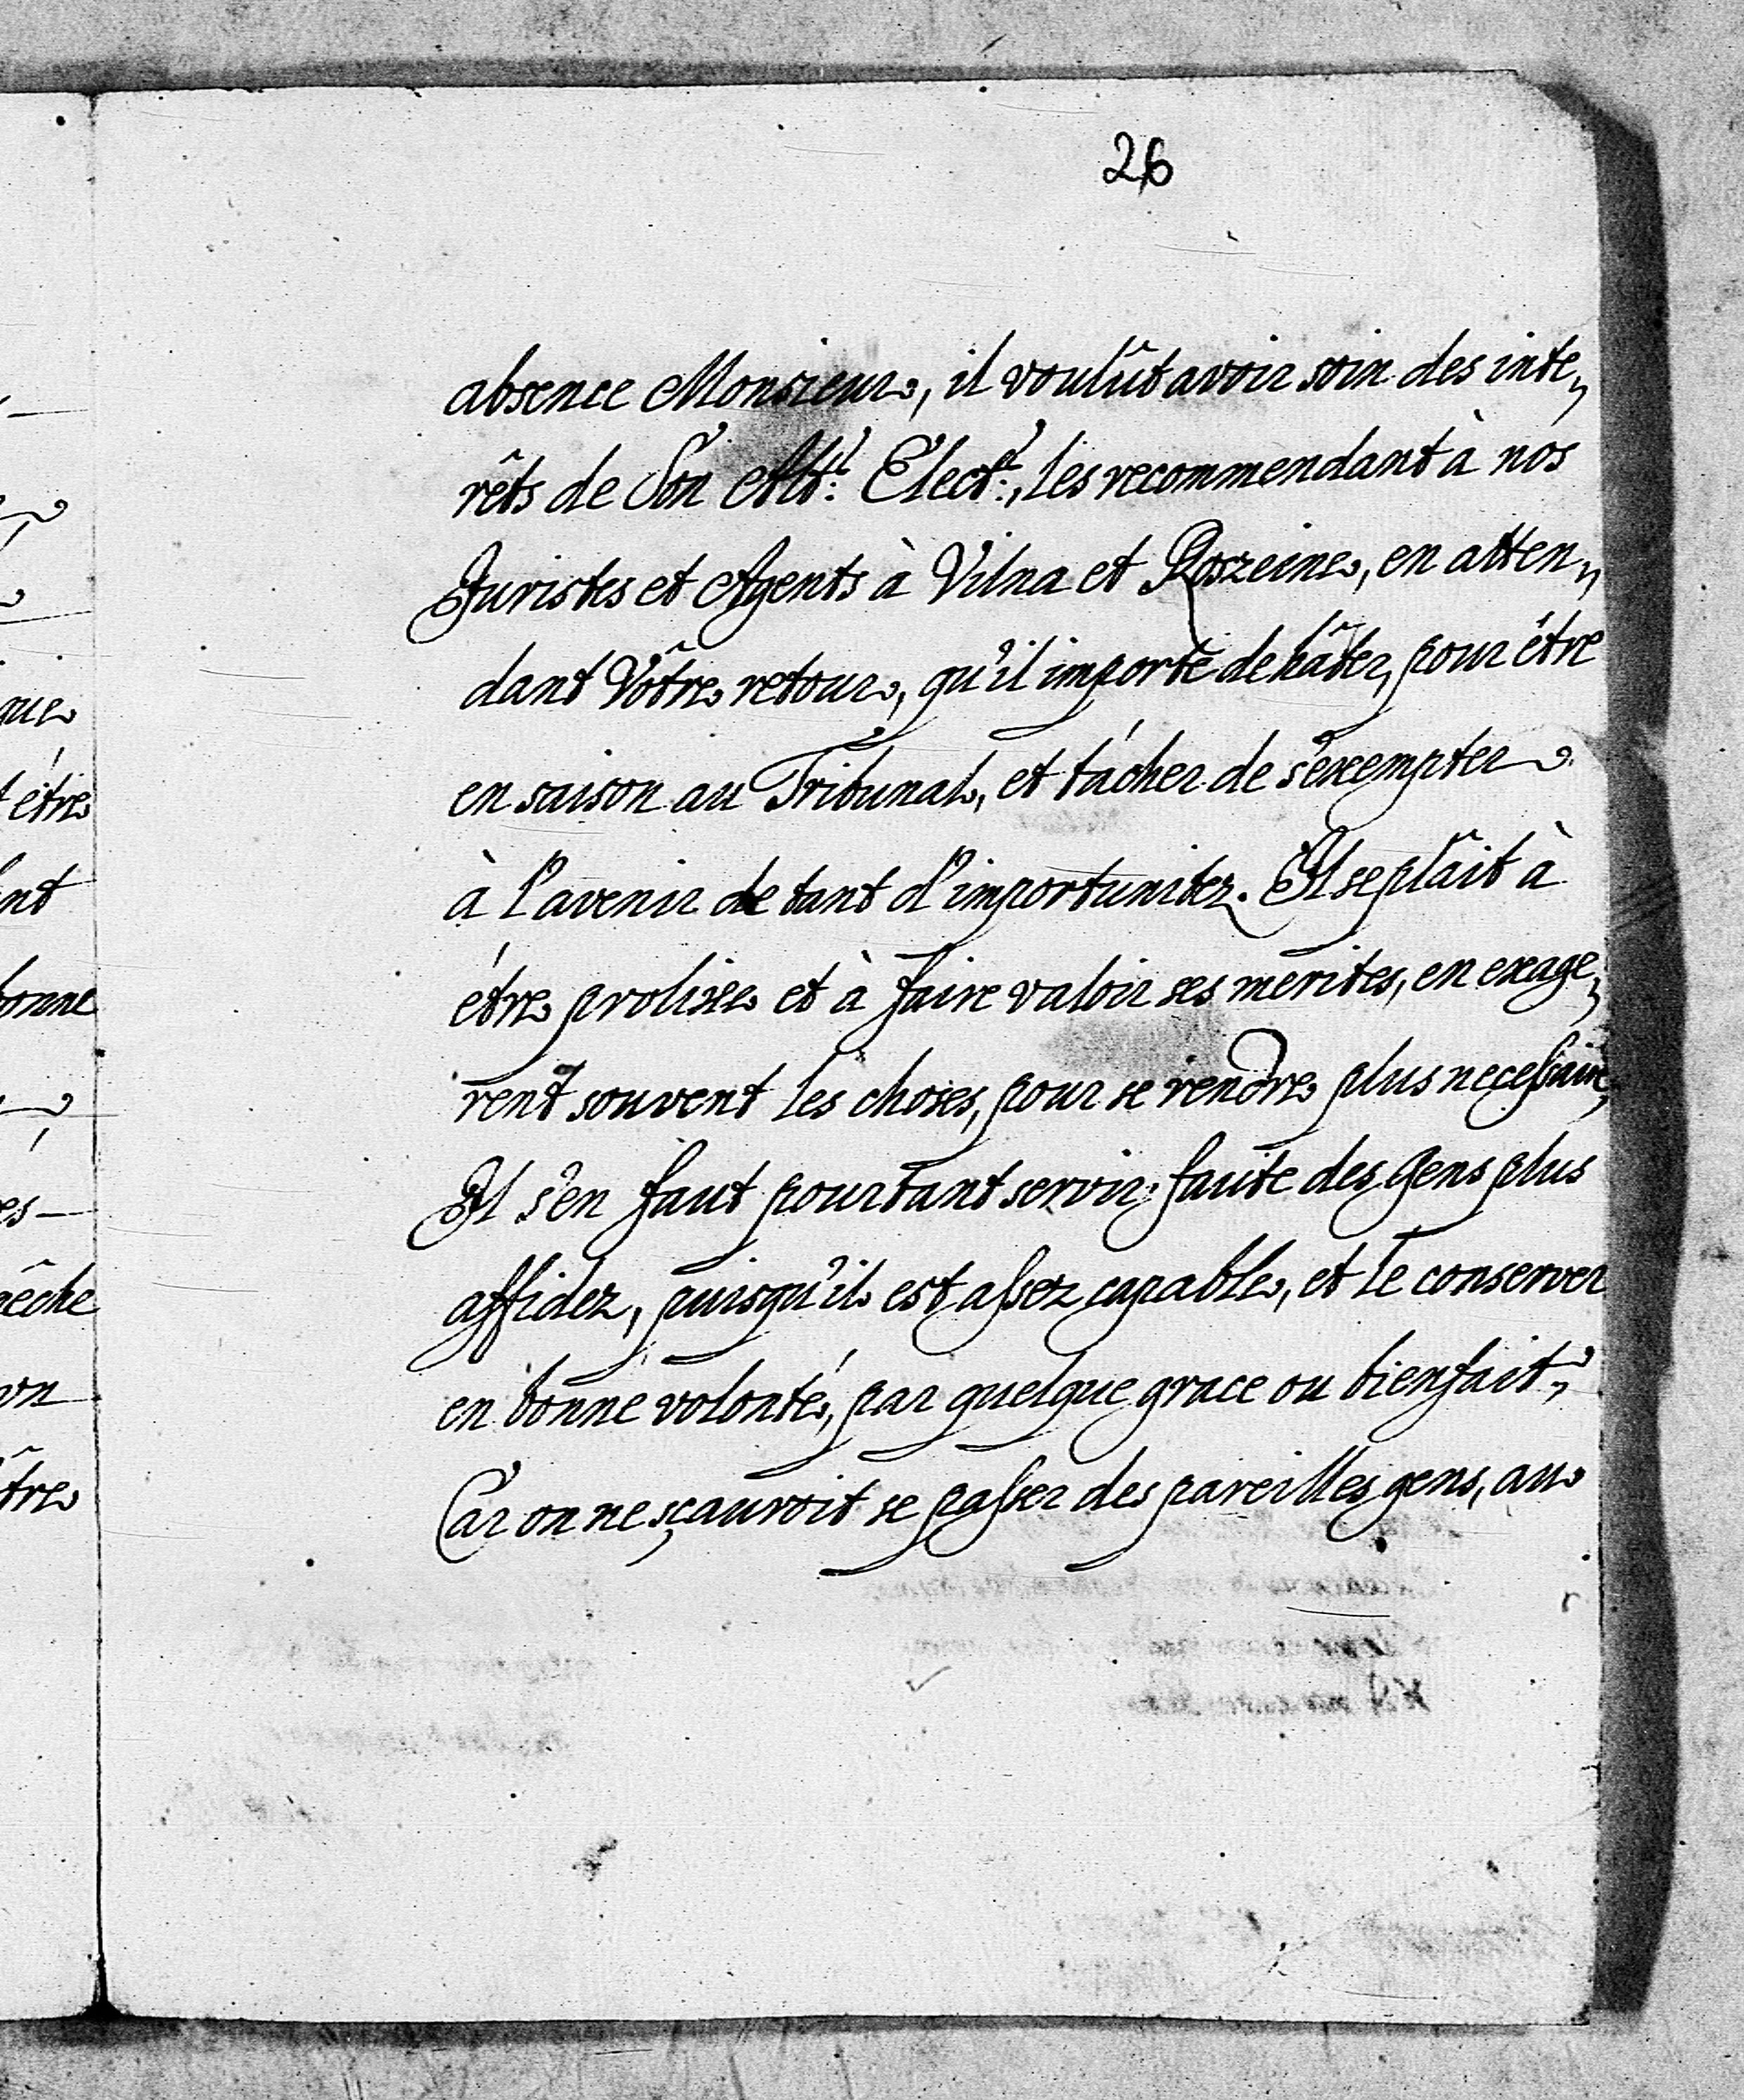 26
absence Monsieur, il voulût avoir soin des inte„
rêts de Son Alt: Elect:, les recommendant à nos
Juristes et Agents à Vilna et Roszeine, en atten„
dant Vôtre retour, qu'il importe de hâter, pour être
en saison au Tribunal, et tácher de s'exempter
à l'avenir de tant d'importunitez. Il se plâit à
étre prolixe et à faire valoir ses merites, en exage„
rent souvent les choses, pour se rendre plus necessaire,
Il s'en faut pourtant servir, faute des gens plus
affidez, puisqu'il est assez capable, et le conserver
en bonne volonté, par quelque grace ou bienfait,
Car on ne sçauroit se passer des pareilles gens, au
que
étre
ent
bonne
es
pêche
on
ôtre